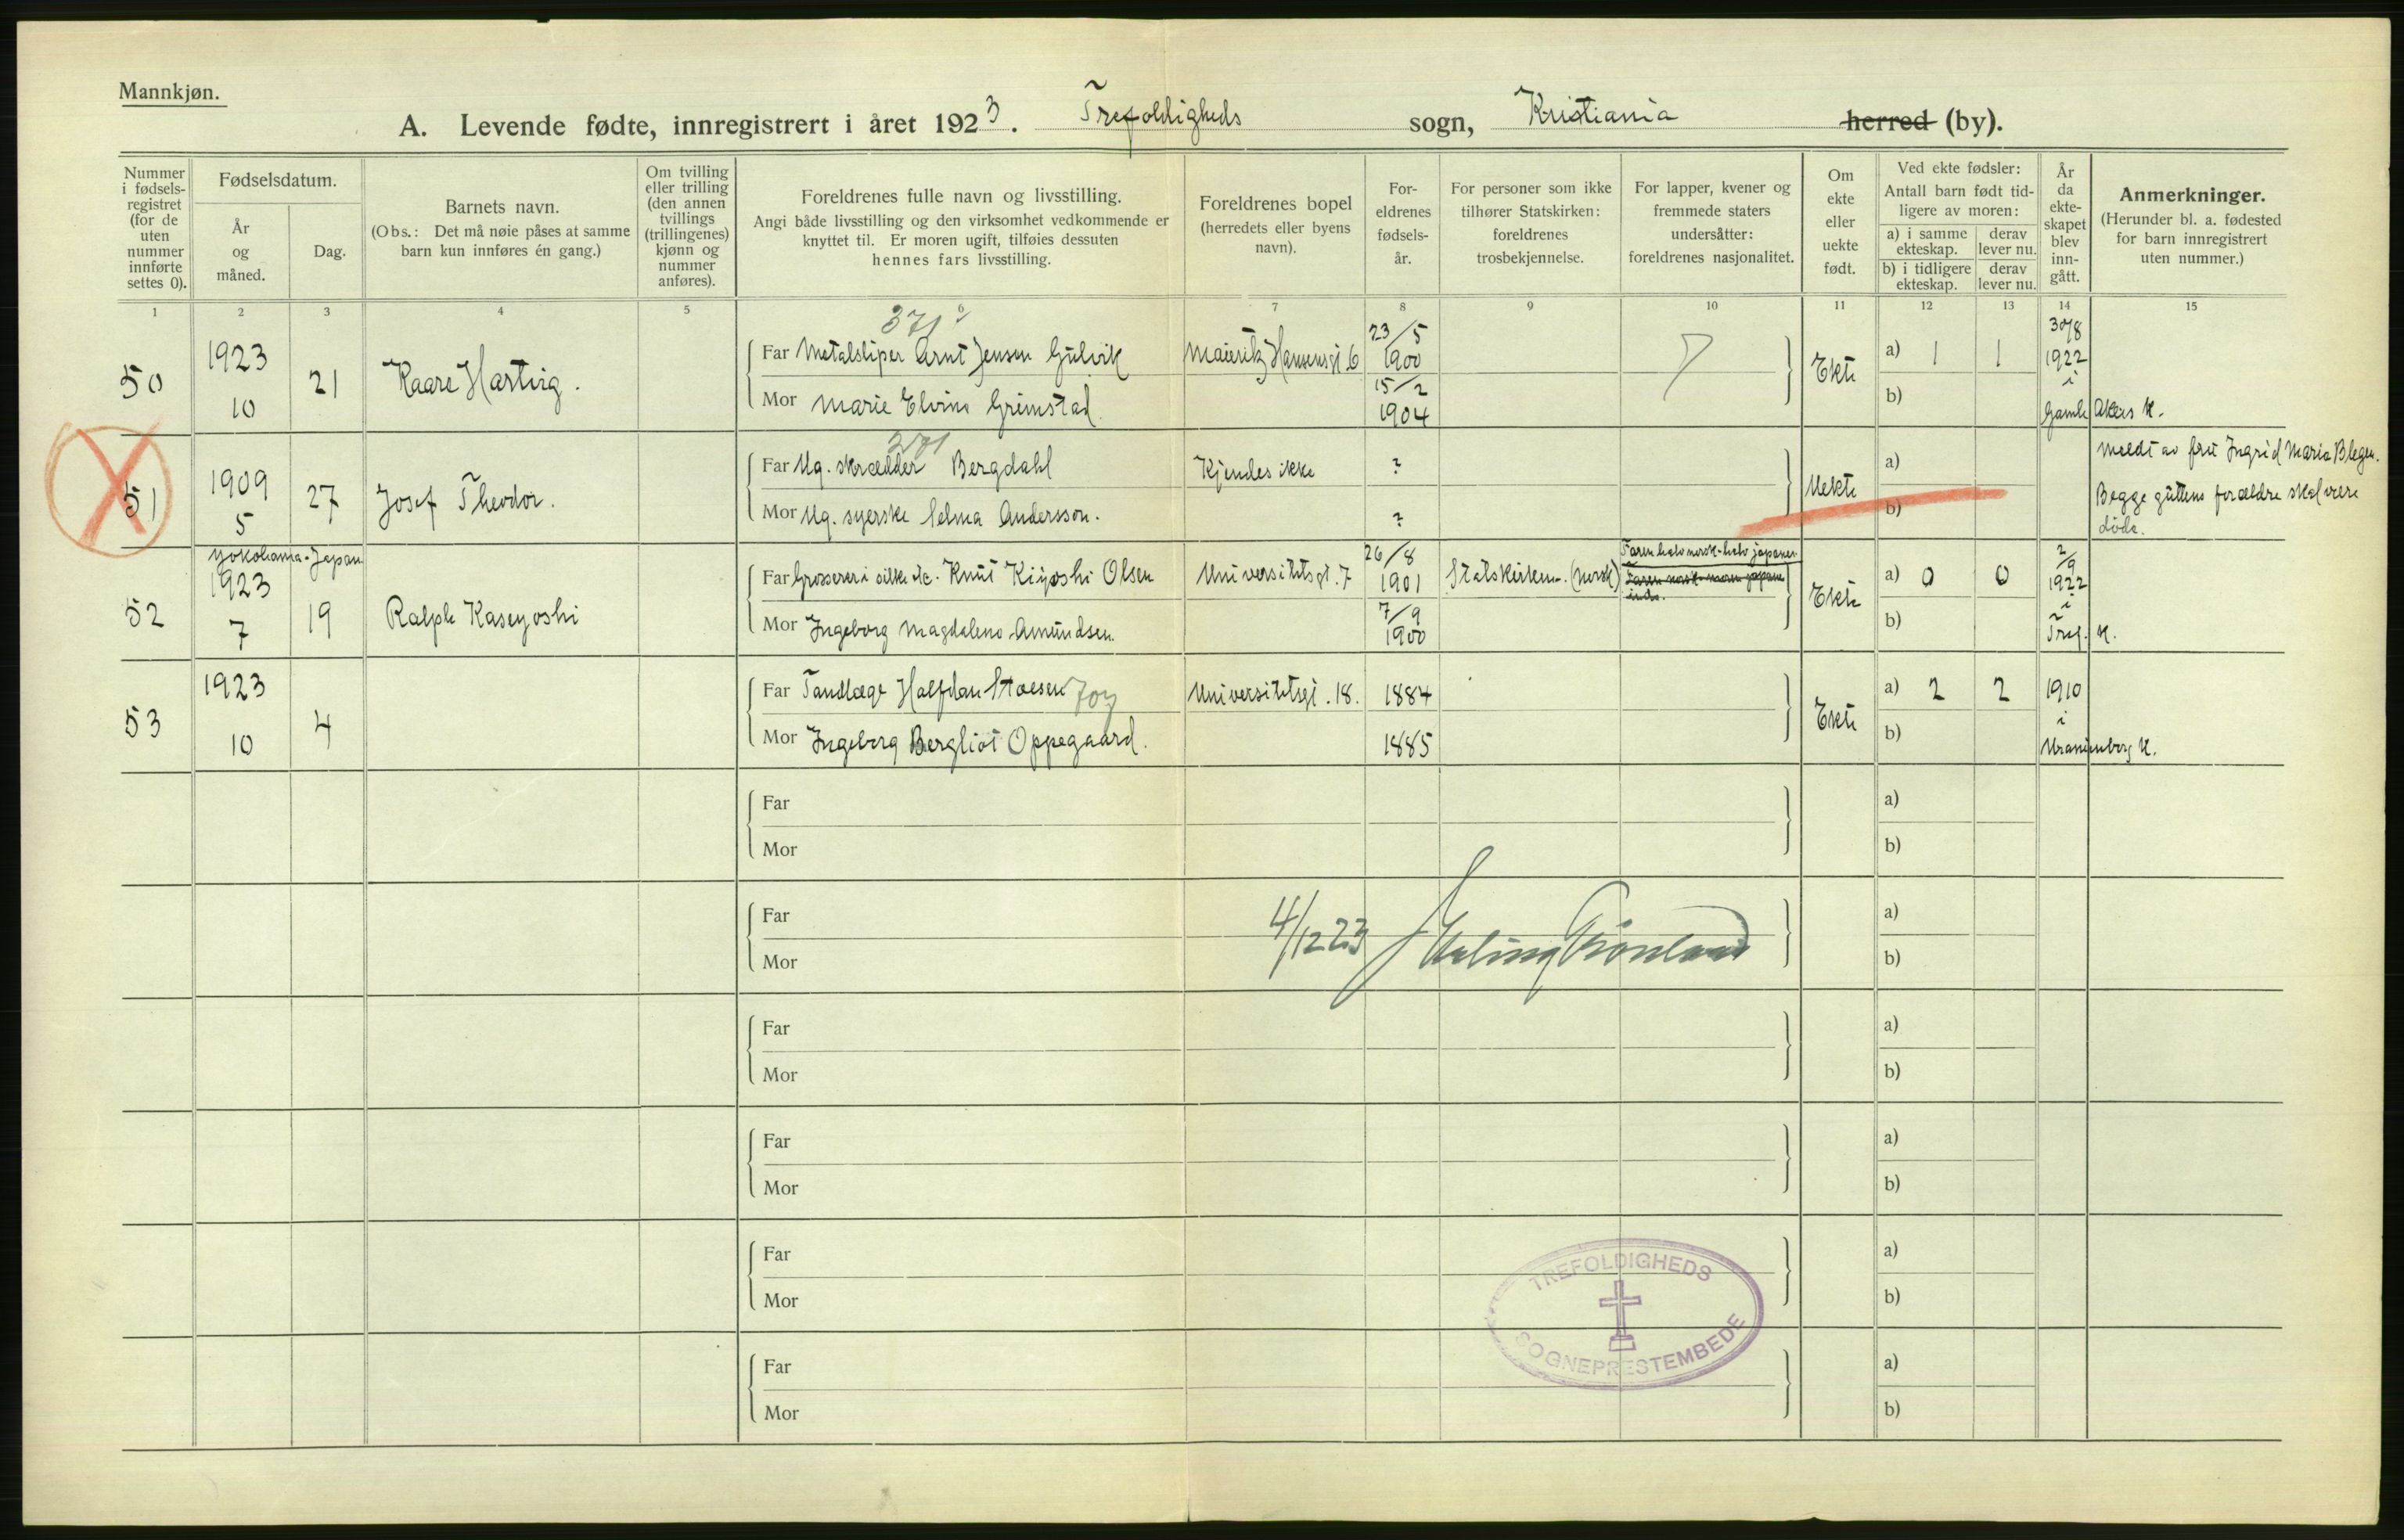 Mannkjøn.
A. Levende fødte, innregistrert i året 1923. Trefoldigheds sogn, Kristiania herred (by).
Nummer i fødsels- registret (for de uten nummer innførte settes 0).
Fødselsdatum.
År og måned.
Dag.
Barnets navn.
(Obs.: Det må nøie påses at samme barn kun innføres én gang.)
Om tvilling eller trilling (den annen tvillings (trillingenes) kjønn og nummer anføres).
Foreldrenes fulle navn og livsstilling.
Angi både livsstilling og den virksomhet vedkommende er knyttet til. Er moren ugift, tilføies dessuten hennes fars livsstilling.
Foreldrenes bopel (herredets eller byens navn).
For- eldrenes fødsels- år.
For personer som ikke tilhører Statskirken: foreldrenes trosbekjennelse.
For lapper, kvener og fremmede staters undersåtter: foreldrenes nasjonalitet.
Om ekte eller uekte født.
Ved ekte fødsler:
Antall barn født tid- ligere av moren:
a) i samme ekteskap.
derav lever nu.
b) i tidligere ekteskap.
derav lever nu.
År da ekte- skapet blev inn- gått.
Anmerkninger.
(Herunder bl. a. fødested for barn innregistrert uten nummer.)
1 2 3 4 5 6 7 8 9 10 11 12 13 14 15
371
50 1923 10 21 Kaare Hartvig.
Far Metalsliper Arnt Jensen Gulvik
Mor Marie Elvine Grimstad.
Hansensgt 6
23/5 1900
15/2 1904
Ekte
a) 1 1
b)
30/8 1922 i Gamle Akers K.
371
51 1909 5 27 Josef Theodor.
Far Ug. skrædder Bergdahl
Mor Ug. syerske Selma Andersson.
Kjendes ikke
?
?
Uekte
a)
b)
Meldt av frk Ingrid Maria Blegen.
Begge guttens forældre skal være døde.
Yokohama - Japan
52 1923 7 19 Ralph Kaseyoshi
Far Grosserer i silke etc. Knut Kiyoshi Olsen
Mor Ingeborg Magdalene Amundsen.
Universitetsgt. 7
26/8 1901
7/9 1900
Statskirken. (norsk)
Faren halv norsk - halv japaner
Faren norsk - moren japane
Ekte
a) 0 0
b)
2/9 1922 i Tref. K.
53 1923 10 4
Far Tandlæge Halfdan Stoesen 709
Mor Ingeborg Bergliot Oppegaard.
Universitetsgt. 18.
1884
1885
Ekte
a) 2 2
b)
1910 i Uranienborg K.
Far
Mor
a)
b)
4/12 23
Far
Mor
a)
b)
Far
Mor
a)
b)
Far
Mor
a)
b)
Far
Mor
a)
b)
TREFOLDIGHEDS
SOGNEPRESTEMBEDE
Far
Mor
a)
b)